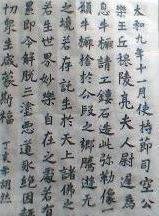 太和九年十一月使持節司空公
樂王丘穆陵亮夫人尉遲為
息牛橛請工鏤石造此彌勒像一
願牛橛捨於分段之鄉騰遊无
之境若存託生於天上諸佛之
若生世界妙樂自在之處若有
累即令解脫三塗惡道永絕因
切眾生咸蒙斯福